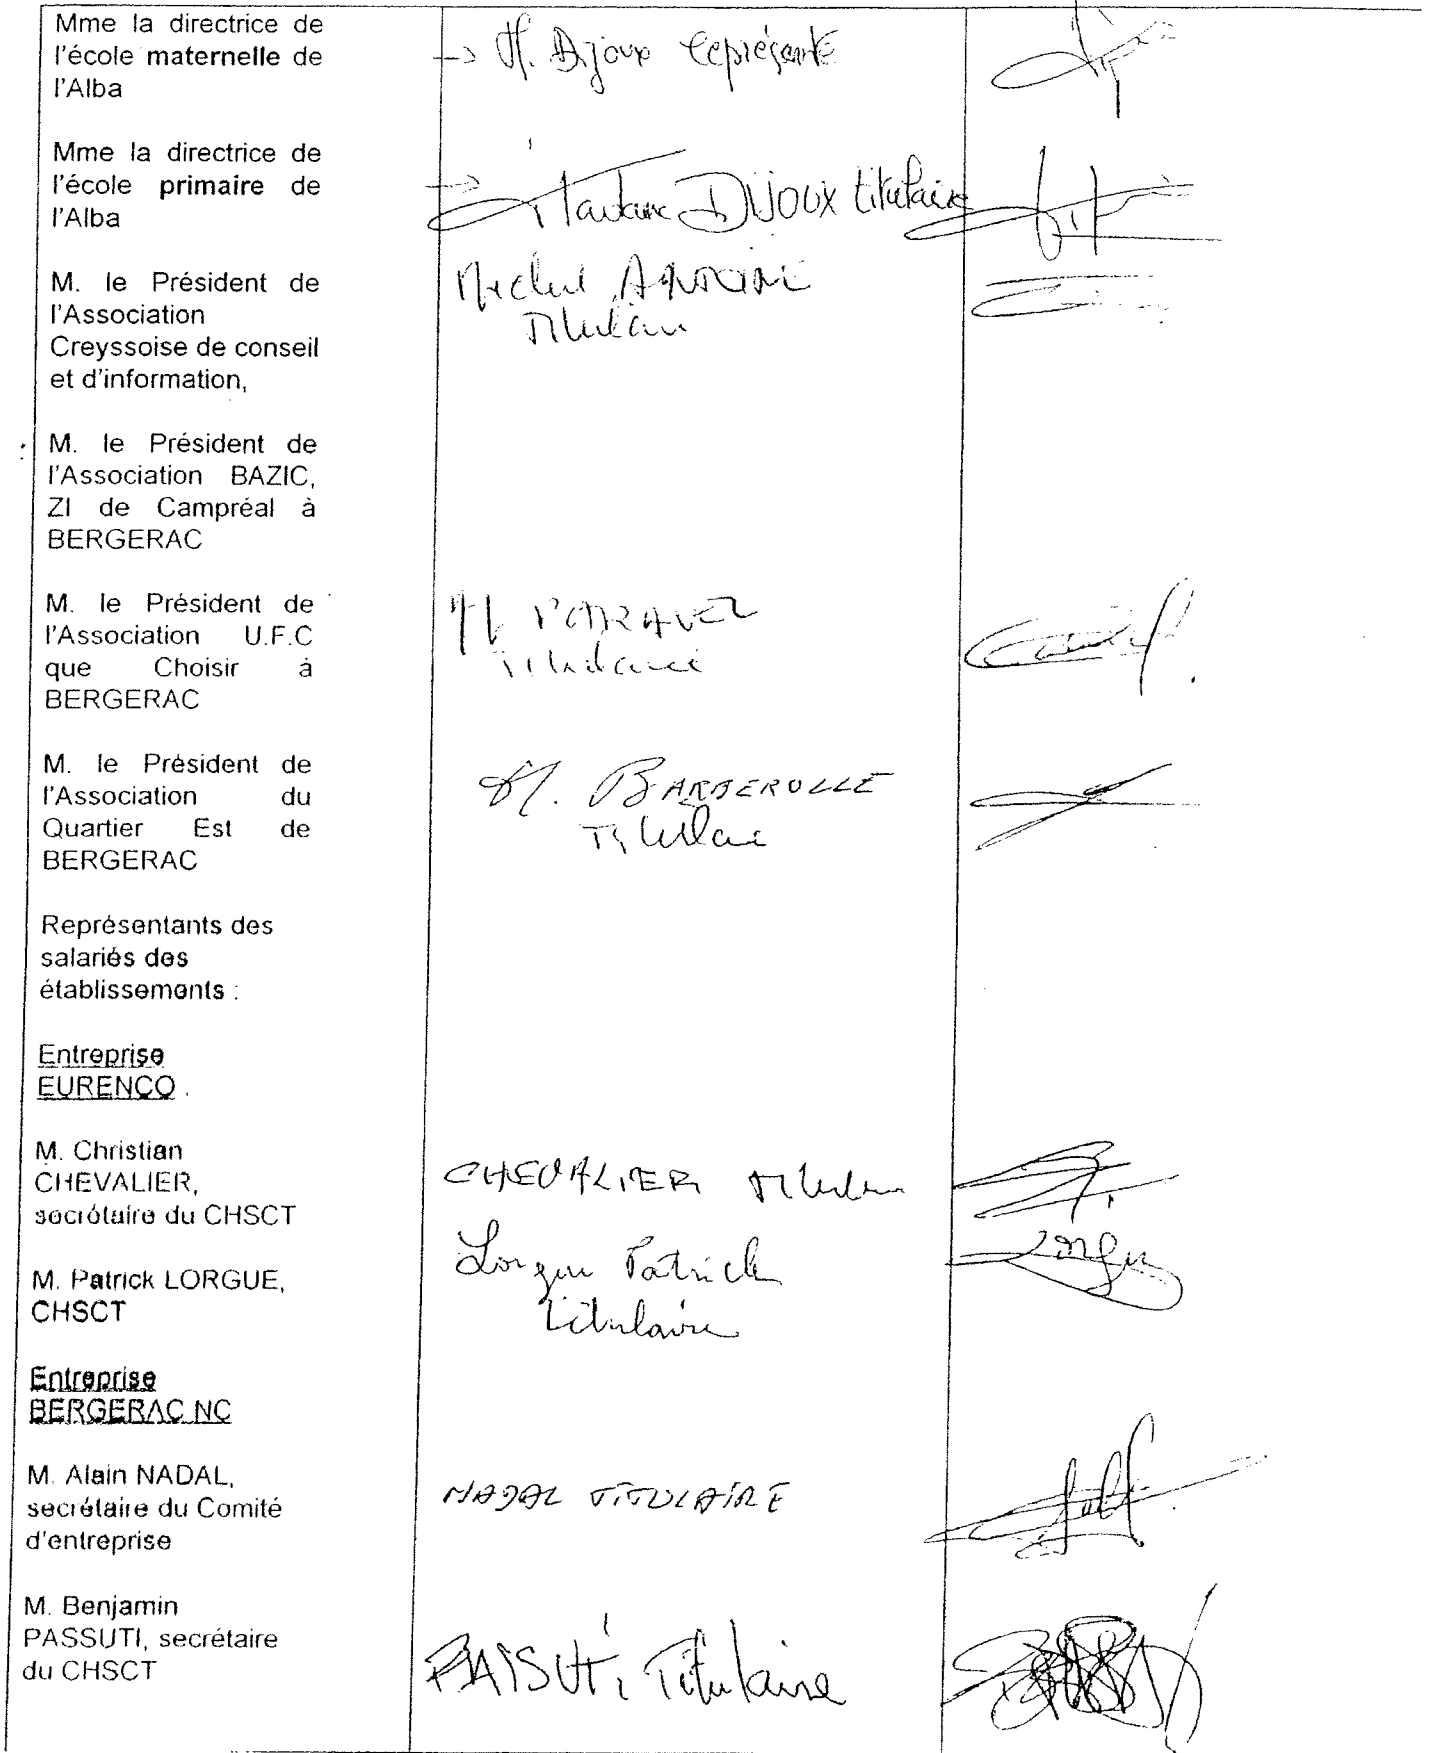 Mme la directrice de
l'école maternelle de
l'Alba
→ M. Dijoux représente
Mme la directrice de
l'école primaire de
l'Alba
→ Madame DIJOUX titulaire
M. le Président de
l'Association
Creyssoise de conseil
et d'information,
Michel
Titulaire
M. le Président de
l'Association BAZIC,
ZI de Campréal à
BERGERAC
M. le Président de
l'Association U.F.C
que Choisir à
BERGERAC
M
Titulaire
M. le Président de
l'Association du
Quartier Est de
BERGERAC
M. BARBEROLLE
Titulaire
Représentants des
salariés des
établissements :
Entreprise
EURENCO
M. Christian
CHEVALIER,
secrétaire du CHSCT
CHEVALIER Titulaire
M. Patrick LORGUE,
CHSCT
Lorgue Patrick
titulaire
Lorgue
Entreprise
BERGERAC NC
M. Alain NADAL,
secrétaire du Comité
d'entreprise
NADAL TITULAIRE
M. Benjamin
PASSUTI, secrétaire
du CHSCT
PASSUTI, Titulaire